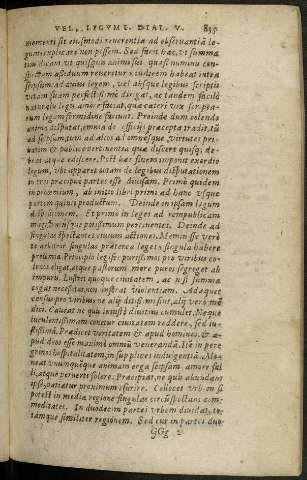 VEL, LEGVMT. DIAL. V. 835
momenti sit eiusmodi reuerentia ad obseruantiã le-
gum explicare non possem. Sed facit hæc, vt summa
tim dicam vt quisque animi sui quasi numinu con-
spectum assiduum reuereatur: eundem habeat intra
se ipsum ad unius legem, vel absque legibus scriptis
vitam suam perfectissimè dirigat, ac tandem facilè
naturalis legis amore faciat, quæ cæteri vix scripta-
rum legum formidine faciunt. Proinde dum colendo
animo disputat, omnia de officijs præcepta tradit, tũ
ad seipsum tum ad alios ad omnesque virtutes pri-
uatim & publicè pertinentia quæ discere quisq; de-
beat atque ediscere. Post hæc finem imponit exordio
legum, vbi apparet totam de legibus disputationem
in tres præcipuè partes esse diuisam. Primò quidem
in proœmium, ab initio libri primi ad hunc vsque
partem quinti productum. Deinde in ipsam legum
dispositionem. Et primo in leges ad rempublicam
magistratusque potissimum pertinentes. Deinde ad
singulas spectantes ciuium actiones. Meminisse verò
te arbitror singulas præterea leges singula habere
prœlimia. Principiò legifer purissimos pro viribus co-
lonos eligat, atque pastorum more puros segreget ab
impuris. Lustret quoque ciuitatem, ac nisi summa
cogat necessitas, non inferat violentiam. Adæquet
census pro viribus ne alij ditissimi sint, alij verò mẽ
dici. Caueat ne quis iniustè diuitias cumulet. Neque
luculentissimam conetur ciuitatem reddere, sed iu-
stissimã. Prædicet veritatem & apud homines, & a-
pud deos esse maximi omniũ venerandã. Ite in pere
grinos hospitalitatem, in supplices indulgentiã. Mo-
neat vnumquẽque animam erga seipsum amore fal
li, atque peruerti solere. Præcipiat, ne quis abundans
ipsi, patiatur proximum esurire. Collocet vrbem si
potest in media regione singulas circũspectans com-
moditates. In duodecim partes vrbem diuidat, to-
tamque similiter regionem. Sed cur in partes duo-
GGg 2